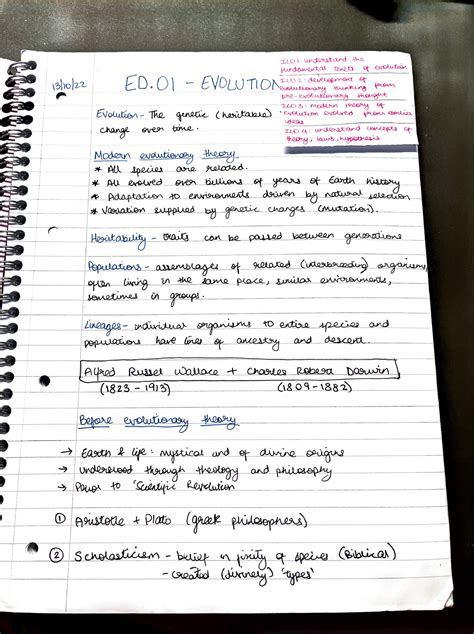 13/10/22
ED.01 - EVOLUTION
ILO1: understand the
fundamental tenets of evolution
ILO2: development of
evolutionary thinking from
pre-evolutionary thought
ILO3: modern theory of
evolution evolved from earlier
ideas
ILO4: understand concepts of
theory, laws, hypothesis
Evolution - The genetic (heritable)
change over time.
Modern evolutionary theory
* All species are related.
* All evolved over billions of years of Earth history
* Adaptation to environments driven by natural selection
* Variation supplied by genetic changes (mutation).
Heritability - traits can be passed between generations
Populations - assemblages of related (interbreeding) organisms,
often living in the same place, similar environments,
sometimes in groups.
Lineages - individual organisms to entire species and
populations have lines of ancestry and descent.
Alfred Russel Wallace + Charles Robert Darwin
(1823 - 1913) (1809 - 1882)
Before evolutionary theory
→ Earth & life: mystical and of divine origins
→ understood through theology and philosophy
→ Prior to 'Scientific Revolution
① Aristotle + Plato (greek philosophers)
② Scholasticism - belief in fixity of species (Biblical)
- created (divinely) 'types'